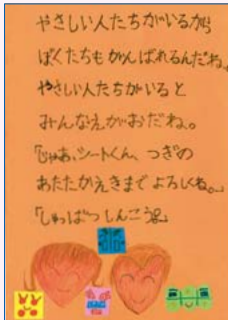 やさしい人たちがいるから
ぼくたちもがんばれるんだね。
やさしい人たちがいると
みんなえがおだね。
「じゃあ、シートくん、つぎの
あたたかえきまでよろしくね。」
「しゅっぱつしんこう。」